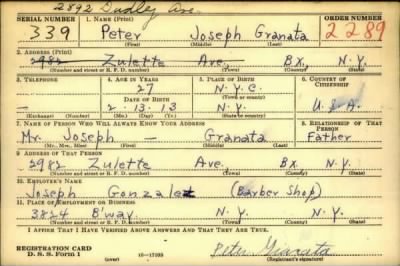 2892 Dudley Ave.
SERIAL NUMBER 1. NAME (Print) ORDER NUMBER
339 Peter Joseph Granata 2289
(First) (Middle) (Last)
2. ADDRESS (Print)
2982 Zulette Ave., Bx, N.Y.
(Number and street or R. F. D. number) (Town) (County) (State)
3. TELEPHONE 4. AGE IN YEARS 5. PLACE OF BIRTH 6. COUNTRY OF CITIZENSHIP
27 N.Y.C.
DATE OF BIRTH (Town or county)
— 2 - 13 - 13 N.Y. U.S.A.
(Exchange) (Number) (Mo.) (Day) (Yr.) (State or country)
7. NAME OF PERSON WHO WILL ALWAYS KNOW YOUR ADDRESS 8. RELATIONSHIP OF THAT PERSON
Mr. Joseph — Granata Father
(Mr., Mrs., Miss) (First) (Middle) (Last)
9. ADDRESS OF THAT PERSON
2982 Zulette Ave. Bx N.Y.
(Number and street or R. F. D. number) (Town) (County) (State)
10. EMPLOYER'S NAME
Joseph Gonzalez (Barber Shop)
11. PLACE OF EMPLOYMENT OR BUSINESS
3824 B'way. N.Y. N.Y.
(Number and street or R. F. D. number) (Town) (County) (State)
I AFFIRM THAT I HAVE VERIFIED ABOVE ANSWERS AND THAT THEY ARE TRUE.
REGISTRATION CARD
D. S. S. Form 1 16—17105 Peter Granata
(Registrant's signature)